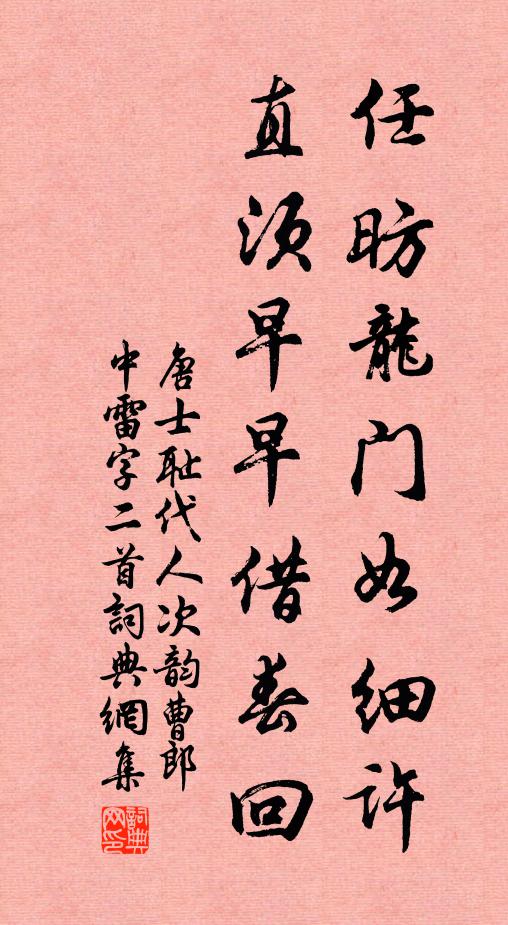 任昉龍门如细许
直须早早借春回
唐士耻代人次韵曹郎
中雷字二首詞典網集
詞典网印